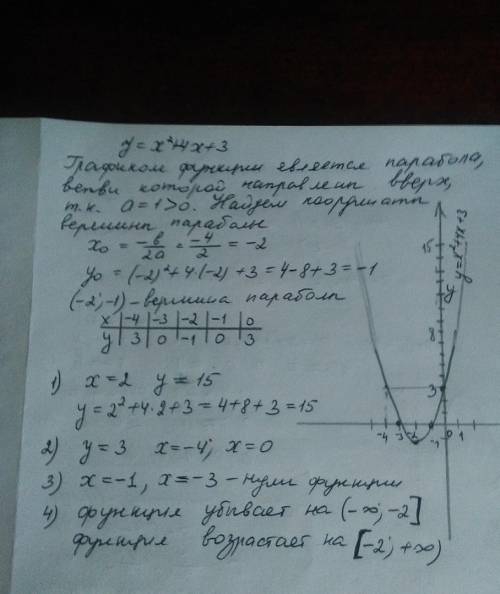 y = x²+4x+3
Графиком функции является парабола,
ветви которой направлены вверх,
т.к. a=1>0. Найдем координаты
вершины параболы
x₀ = -b/2a = -4/2 = -2
y₀ = (-2)²+4·(-2)+3 = 4-8+3 = -1
(-2;-1) - вершина параболы
x | -4 | -3 | -2 | -1 | 0
y | 3 | 0 | -1 | 0 | 3
1) x=2 y=15
y=2²+4·2+3=4+8+3=15
2) y=3 x=-4; x=0
3) x=-1, x=-3 - нули функции
4) функция убывает на (-∞; -2]
функция возрастает на [-2; +∞)
y
y=x²+4x+3
15
8
3
-4 -3 -2 -1 0 1